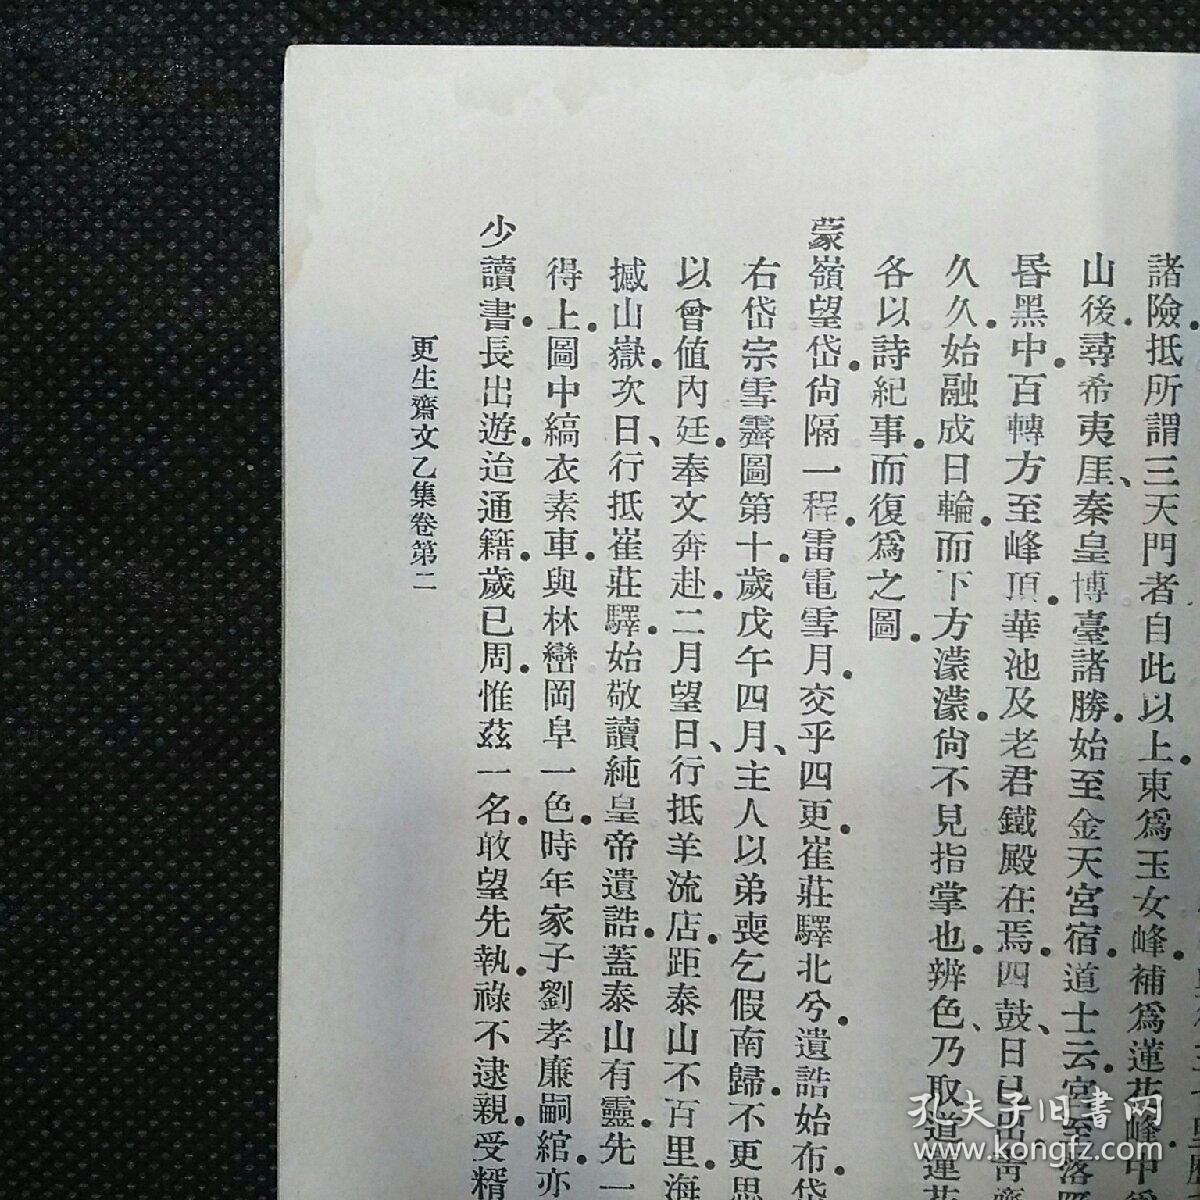 諸險．抵所謂三天門者自此以上．東爲玉女峰補爲蓮花峰．中
山後．尋希夷厓、秦皇博臺諸勝．始至金天宮宿．道士云．宮至落
昏黑中．百轉方至峰頂．華池及老君鐵殿在焉．四鼓、日已出．靑
久久．始融成日輪．而下方濛濛．尙不見指掌也．辨色、乃取道蓮花
各以詩紀事．而復爲之圖．
蒙嶺望岱．尙隔一程．雷電雪月．交乎四更．崔莊驛北兮．遺誥始布．岱
右岱宗雪霽圖第十．歲戊午四月、主人以弟喪乞假南歸．不更思
以曾值內廷．奉文奔赴．二月望日、行抵羊流店．距泰山不百里．海
撼山嶽．次日、行抵崔莊驛．始敬讀純皇帝遺誥．蓋泰山有靈．先一
得上．圖中縞衣素車．與林巒岡阜一色．時年家子劉孝廉嗣綰．亦
少讀書．長出遊．迨通籍．歲已周．惟茲一名．敢望先執．祿不逮親．受糈
更生齋文乙集卷第二
孔夫子旧書网
www.kongfz.com